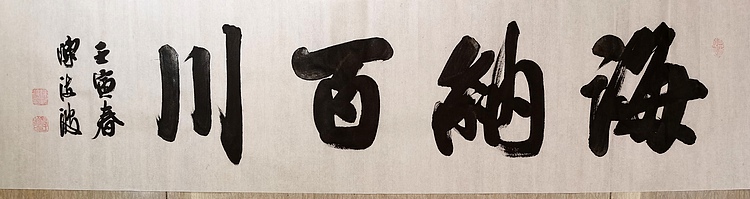 海納百川
壬寅春